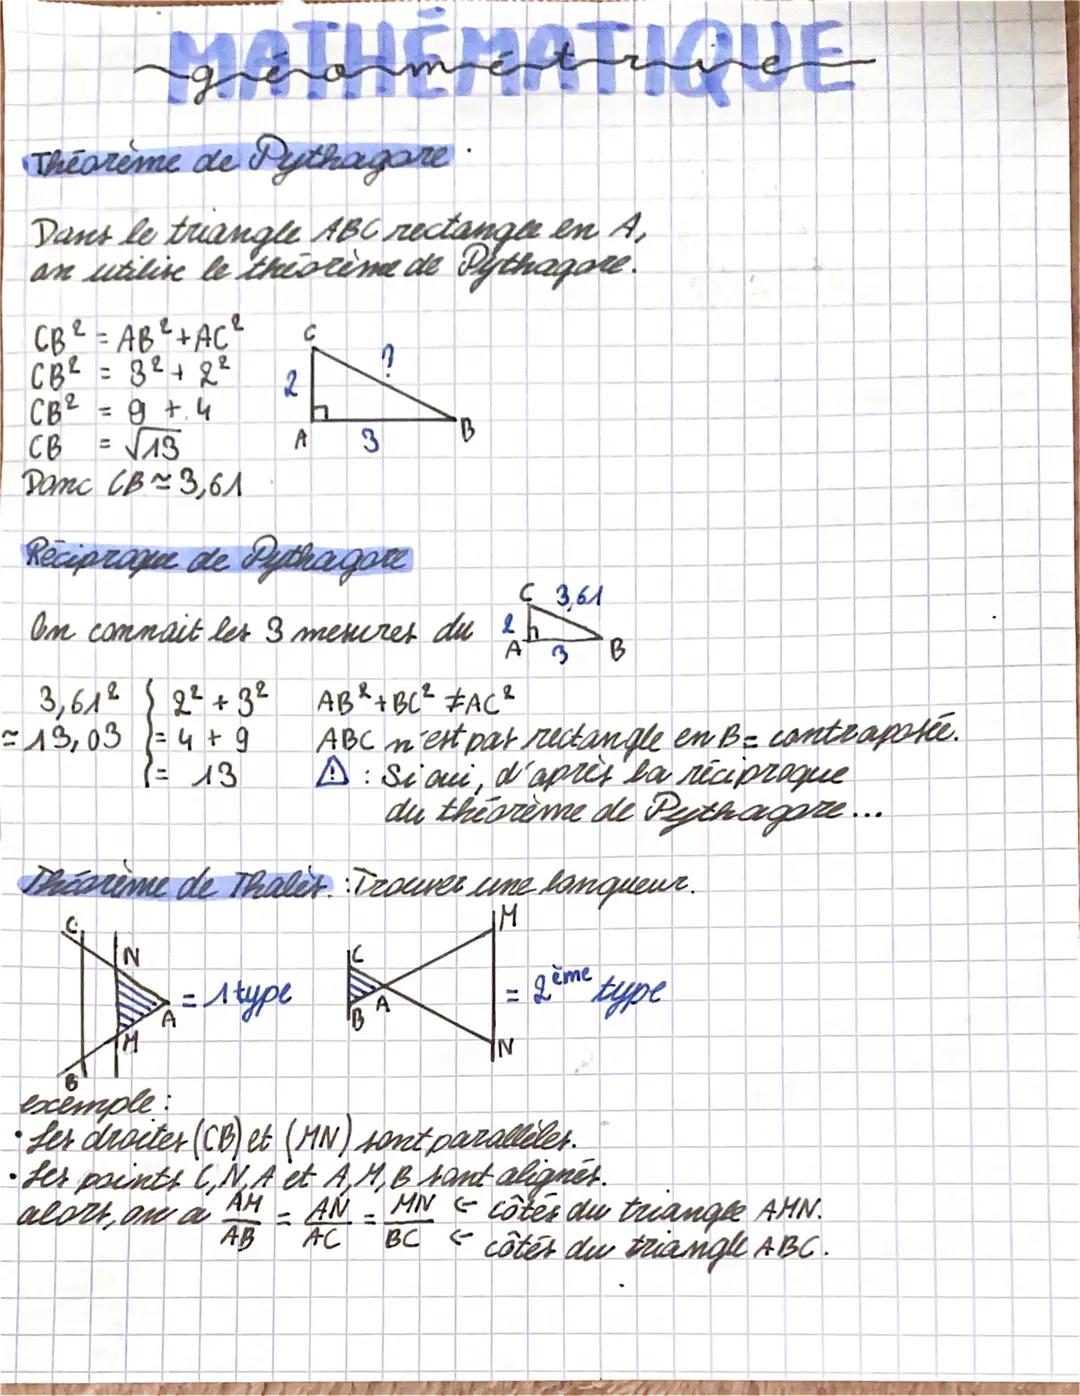 MATHÉMATIQUE
géométrie
Théorème de Pythagore
Dans le triangle ABC rectangle en A,
on utilise le théorème de Pythagore.
CB² = AB² + AC²
CB² = 3² + 2²
CB² = 9 + 4
CB = √13
Donc CB ≃ 3,61
C
?
2
A
3
B
Réciproque de Pythagore
On connait les 3 mesures du
C 3,61
2
A 3 B
3,61² { 2² + 3² AB² + BC² ≠ AC²
≃ 13,03 = 4 + 9 ABC n'est pas rectangle en B = contraposée.
= 13 ⚠ : Si oui, d'après la réciproque
du théorème de Pythagore...
Théorème de Thalès : Trouver une longueur.
C
N
A
M
B
= 1 type
C
A
B
M
N
= 2ème type
exemple :
• Les droites (CB) et (MN) sont parallèles.
• Les points C, N, A et A, M, B sont alignés.
alors, on a AM/AB = AN/AC = MN/BC ← côtés du triangle AMN.
← côtés du triangle ABC.